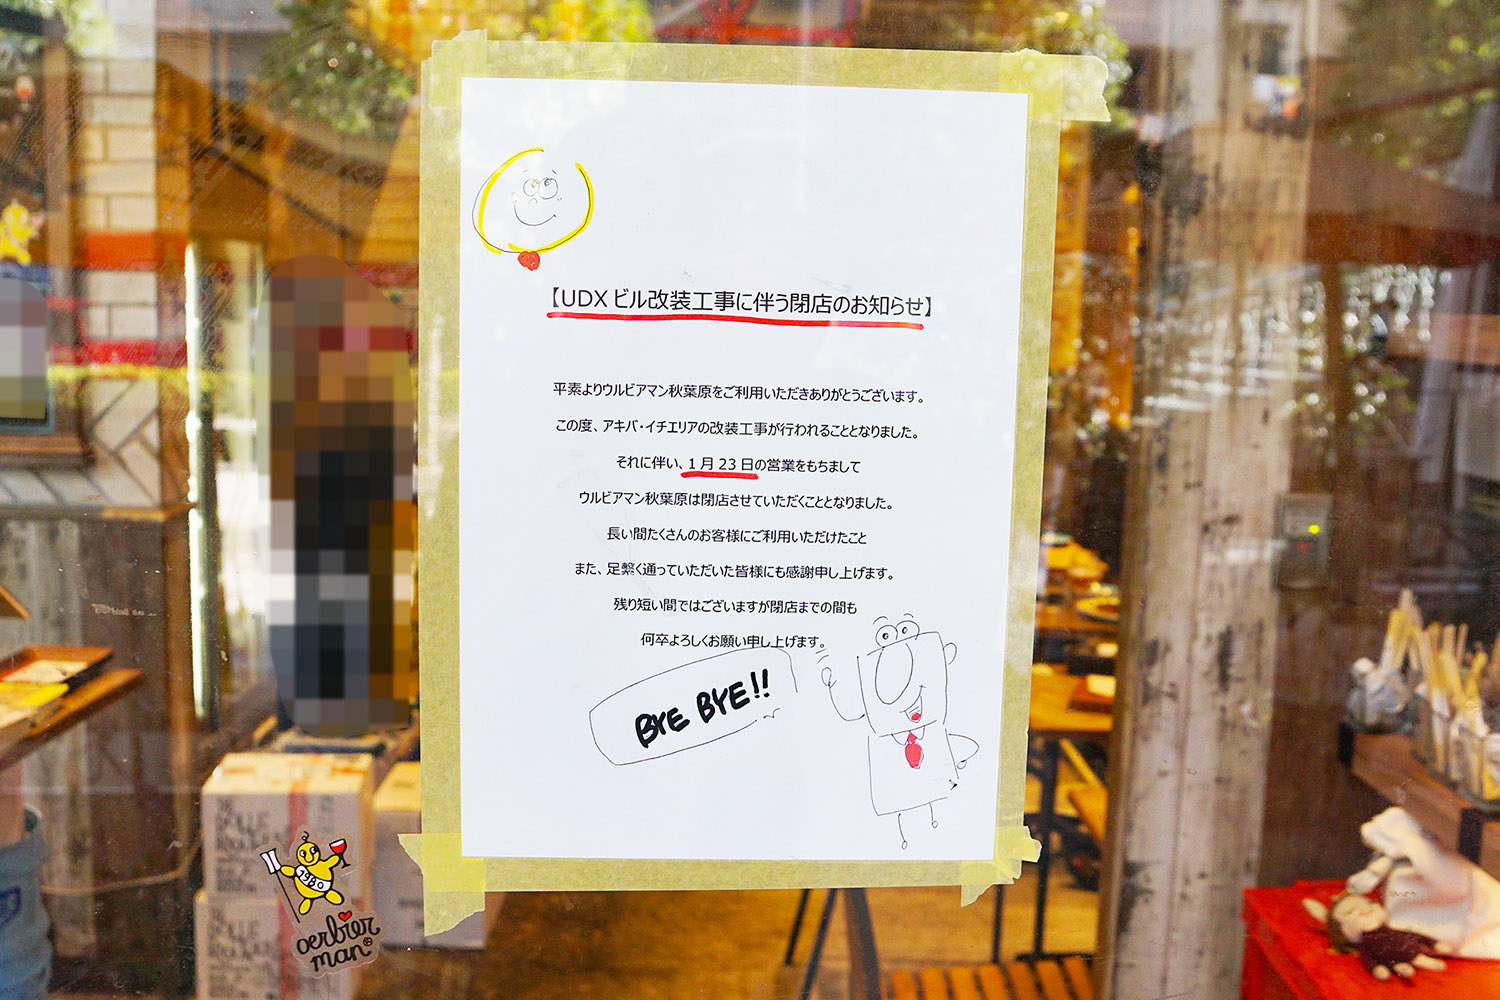 【UDX ビル改装工事に伴う閉店のお知らせ】
平素よりウルビアマン秋葉原をご利用いただきありがとうございます。
この度、アキバ・イチエリアの改装工事が行われることとなりました。
それに伴い、1 月 23 日の営業をもちまして
ウルビアマン秋葉原は閉店させていただくこととなりました。
長い間たくさんのお客様にご利用いただけたこと
また、足繫く通っていただいた皆様にも感謝申し上げます。
残り短い間ではございますが閉店までの間も
何卒よろしくお願い申し上げます。
BYE BYE!!
1980
oerbier
man